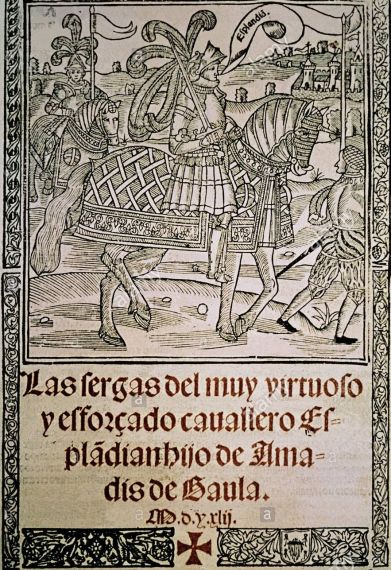 Esplandiā.
Las sergas del muy virtuoso
y esforçado cauallero Es-
plādian hijo de Ama-
dis de Gaula.
M.d.x.xlij.